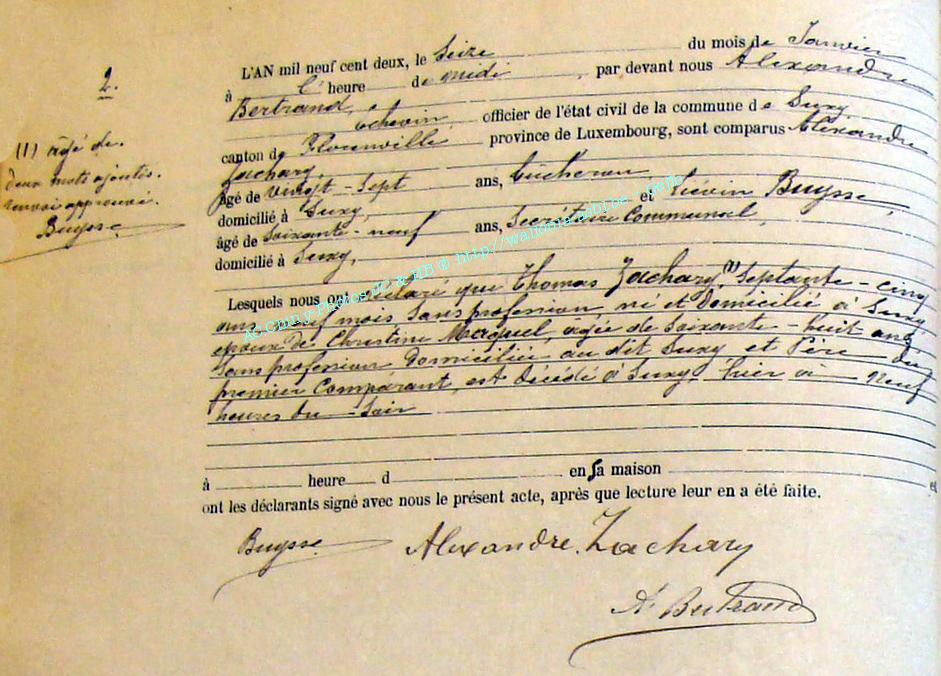 2.
(1) âgé de.
deux mots ajoutés.
renvoi approuvé.
Buysse
L'AN mil neuf cent deux, le Seize du mois de Janvier
à l' heure de midi, par devant nous Alexandre
Bertrand, Echevin, officier de l'état civil de la commune de Suxy
canton de Florenville, province de Luxembourg, sont comparus Alexandre
Zachary,
âgé de vingt-sept ans, Bûcheron,
domicilié à Suxy, et Liévin Buysse,
âgé de Soixante-neuf ans, Secrétaire Communal,
domicilié à Suxy,
Lesquels nous ont déclaré que Thomas Zachary, (1) Septante-cinq
ans neuf mois Sans profession, né et Domicilié à Suxy
époux de Christine Maquel, âgée de Soixante-huit ans,
Sans profession Domiciliée au dit Suxy et Père du
premier Comparant, est Décédé à Suxy, hier à neuf
heures du Soir
à heure d en sa maison et
ont les déclarants signé avec nous le présent acte, après que lecture leur en a été faite.
Buysse Alexandre Zachary
A. Bertrand